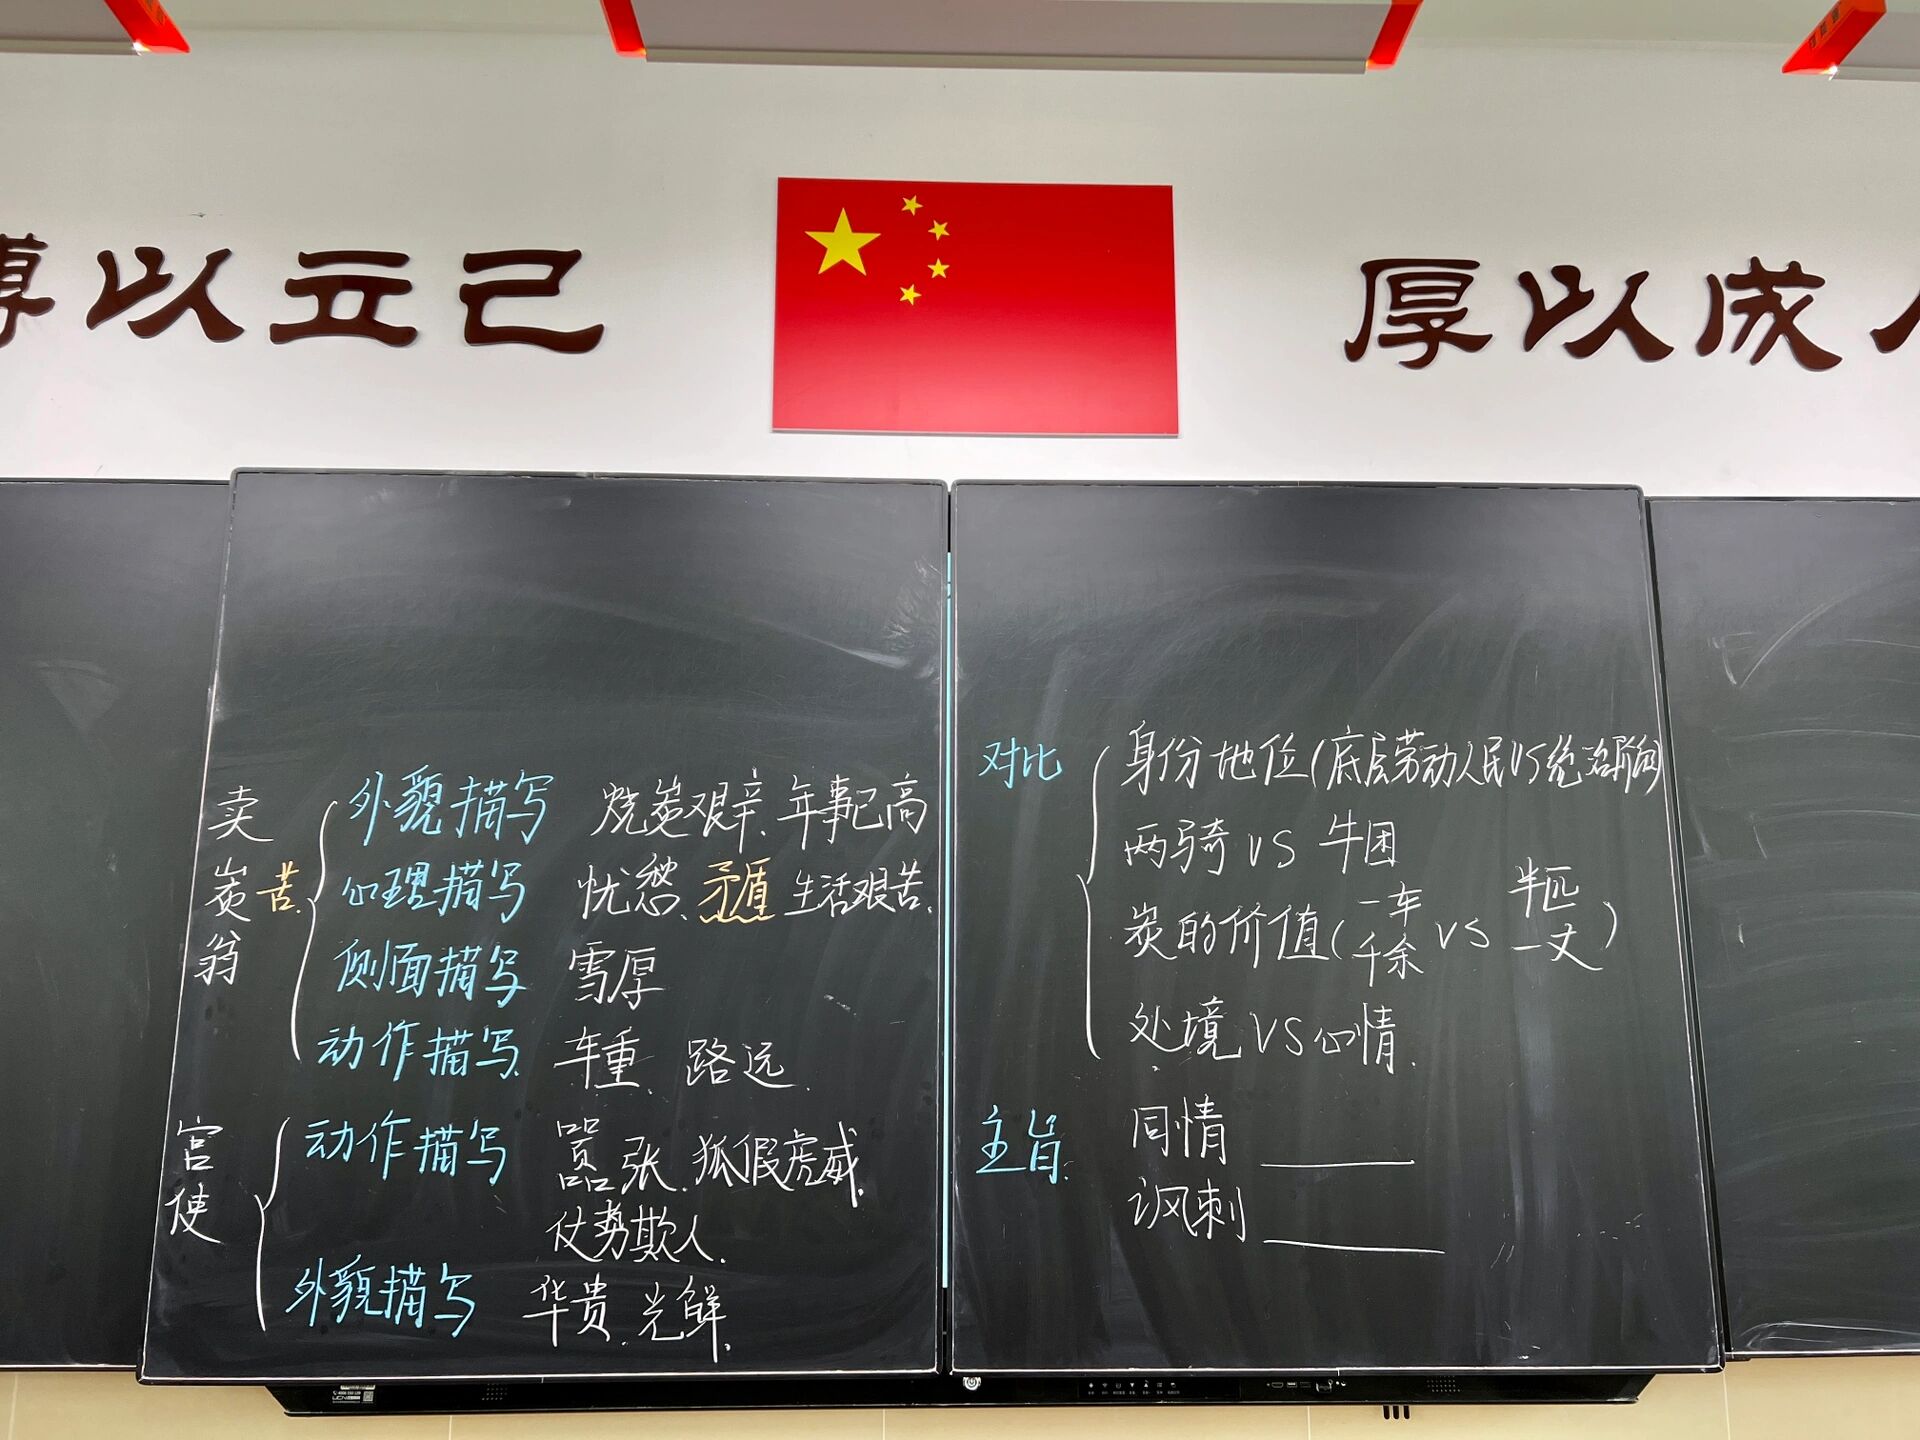 博以立己
厚以成人
卖炭翁
苦.
外貌描写 烧炭艰辛、年事已高
心理描写 忧愁、矛盾 生活艰苦.
侧面描写 雪厚
动作描写. 车重、路远.
宫使
动作描写 嚣张、狐假虎威、
仗势欺人.
外貌描写 华贵、光鲜.
对比
身份地位(底层劳动人民VS统治阶级)
两骑 VS 牛困
炭的价值(一车千余 VS 半匹一丈)
处境 VS 心情.
主旨.
同情
讽刺